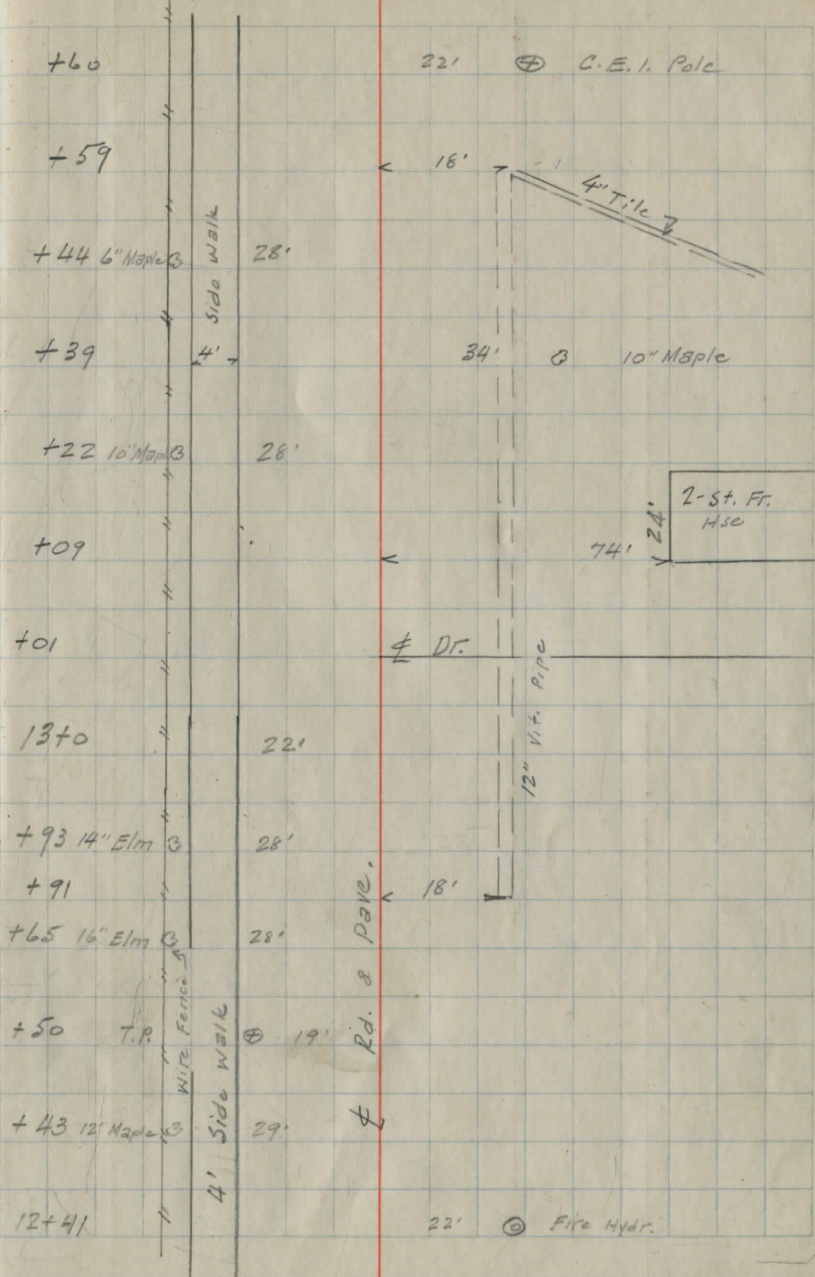 +60 22' C.E.I. Pole
+59 18'
4" Tile
+44 6" Maple 28'
Side Walk
+39 4' 34' 10" Maple
+22 10" Map 28'
2-St. Fr.
Hse
24'
+09 74'
+01 ℄ Dr.
12" Vit. Pipe
13+0 22'
+93 14" Elm 28'
+91 18'
+65 16" Elm 28'
Wire Fence
+50 T.P. 19'
℄ Rd. & Pave.
4' Side Walk
+43 12" Maple 29'
12+41 22' Fire Hydr.